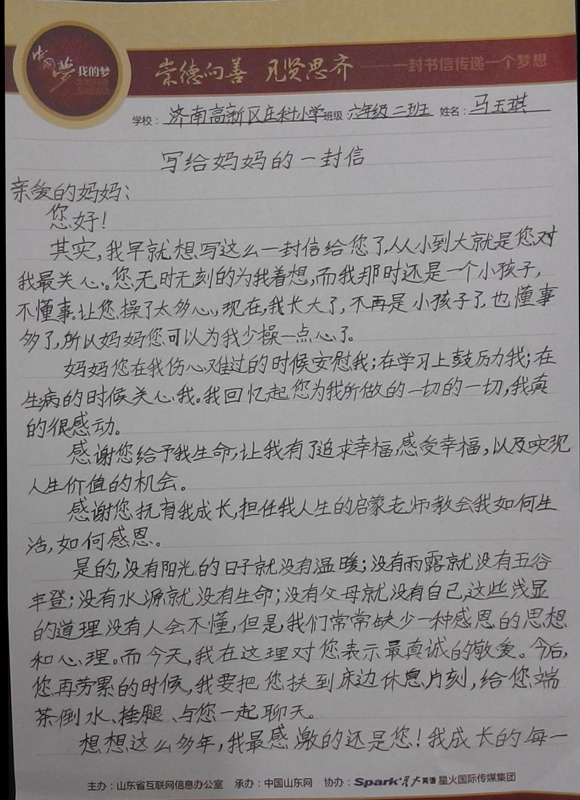 中国梦 我的梦
崇德向善 见贤思齐 —— 一封书信传递一个梦想
学校: 济南高新区庄科小学 班级 六年级二班 姓名: 马玉琪
写给妈妈的一封信
亲爱的妈妈:
您好!
其实,我早就想写这么一封信给您了,从小到大就是您对
我最关心。您无时无刻的为我着想,而我那时还是一个小孩子,
不懂事。让您操了太多心,现在,我长大了,不再是小孩子了,也懂事
多了,所以妈妈您可以为我少操一点心了。
妈妈您在我伤心难过的时候安慰我;在学习上鼓励我;在
生病的时候关心我。我回忆起您为我所做的一切的一切,我真
的很感动。
感谢您给予我生命,让我有了追求幸福,感受幸福,以及实现
人生价值的机会。
感谢您抚育我成长,担任我人生的启蒙老师教会我如何生
活,如何感恩。
是的,没有阳光的日子就没有温暖;没有雨露就没有五谷
丰登;没有水源就没有生命;没有父母就没有自己,这些浅显
的道理没有人会不懂,但是,我们常常缺少一种感恩的思想
和心理。而今天,我在这理对您表示最真诚的敬爱。今后,
您再劳累的时候,我要把您扶到床边休息片刻,给您端
茶倒水、捶腿、与您一起聊天。
想想这么多年,我最感激的还是您!我成长的每一
主办:山东省互联网信息办公室 承办:中国山东网 协办:Spark 星火英语 星火国际传媒集团